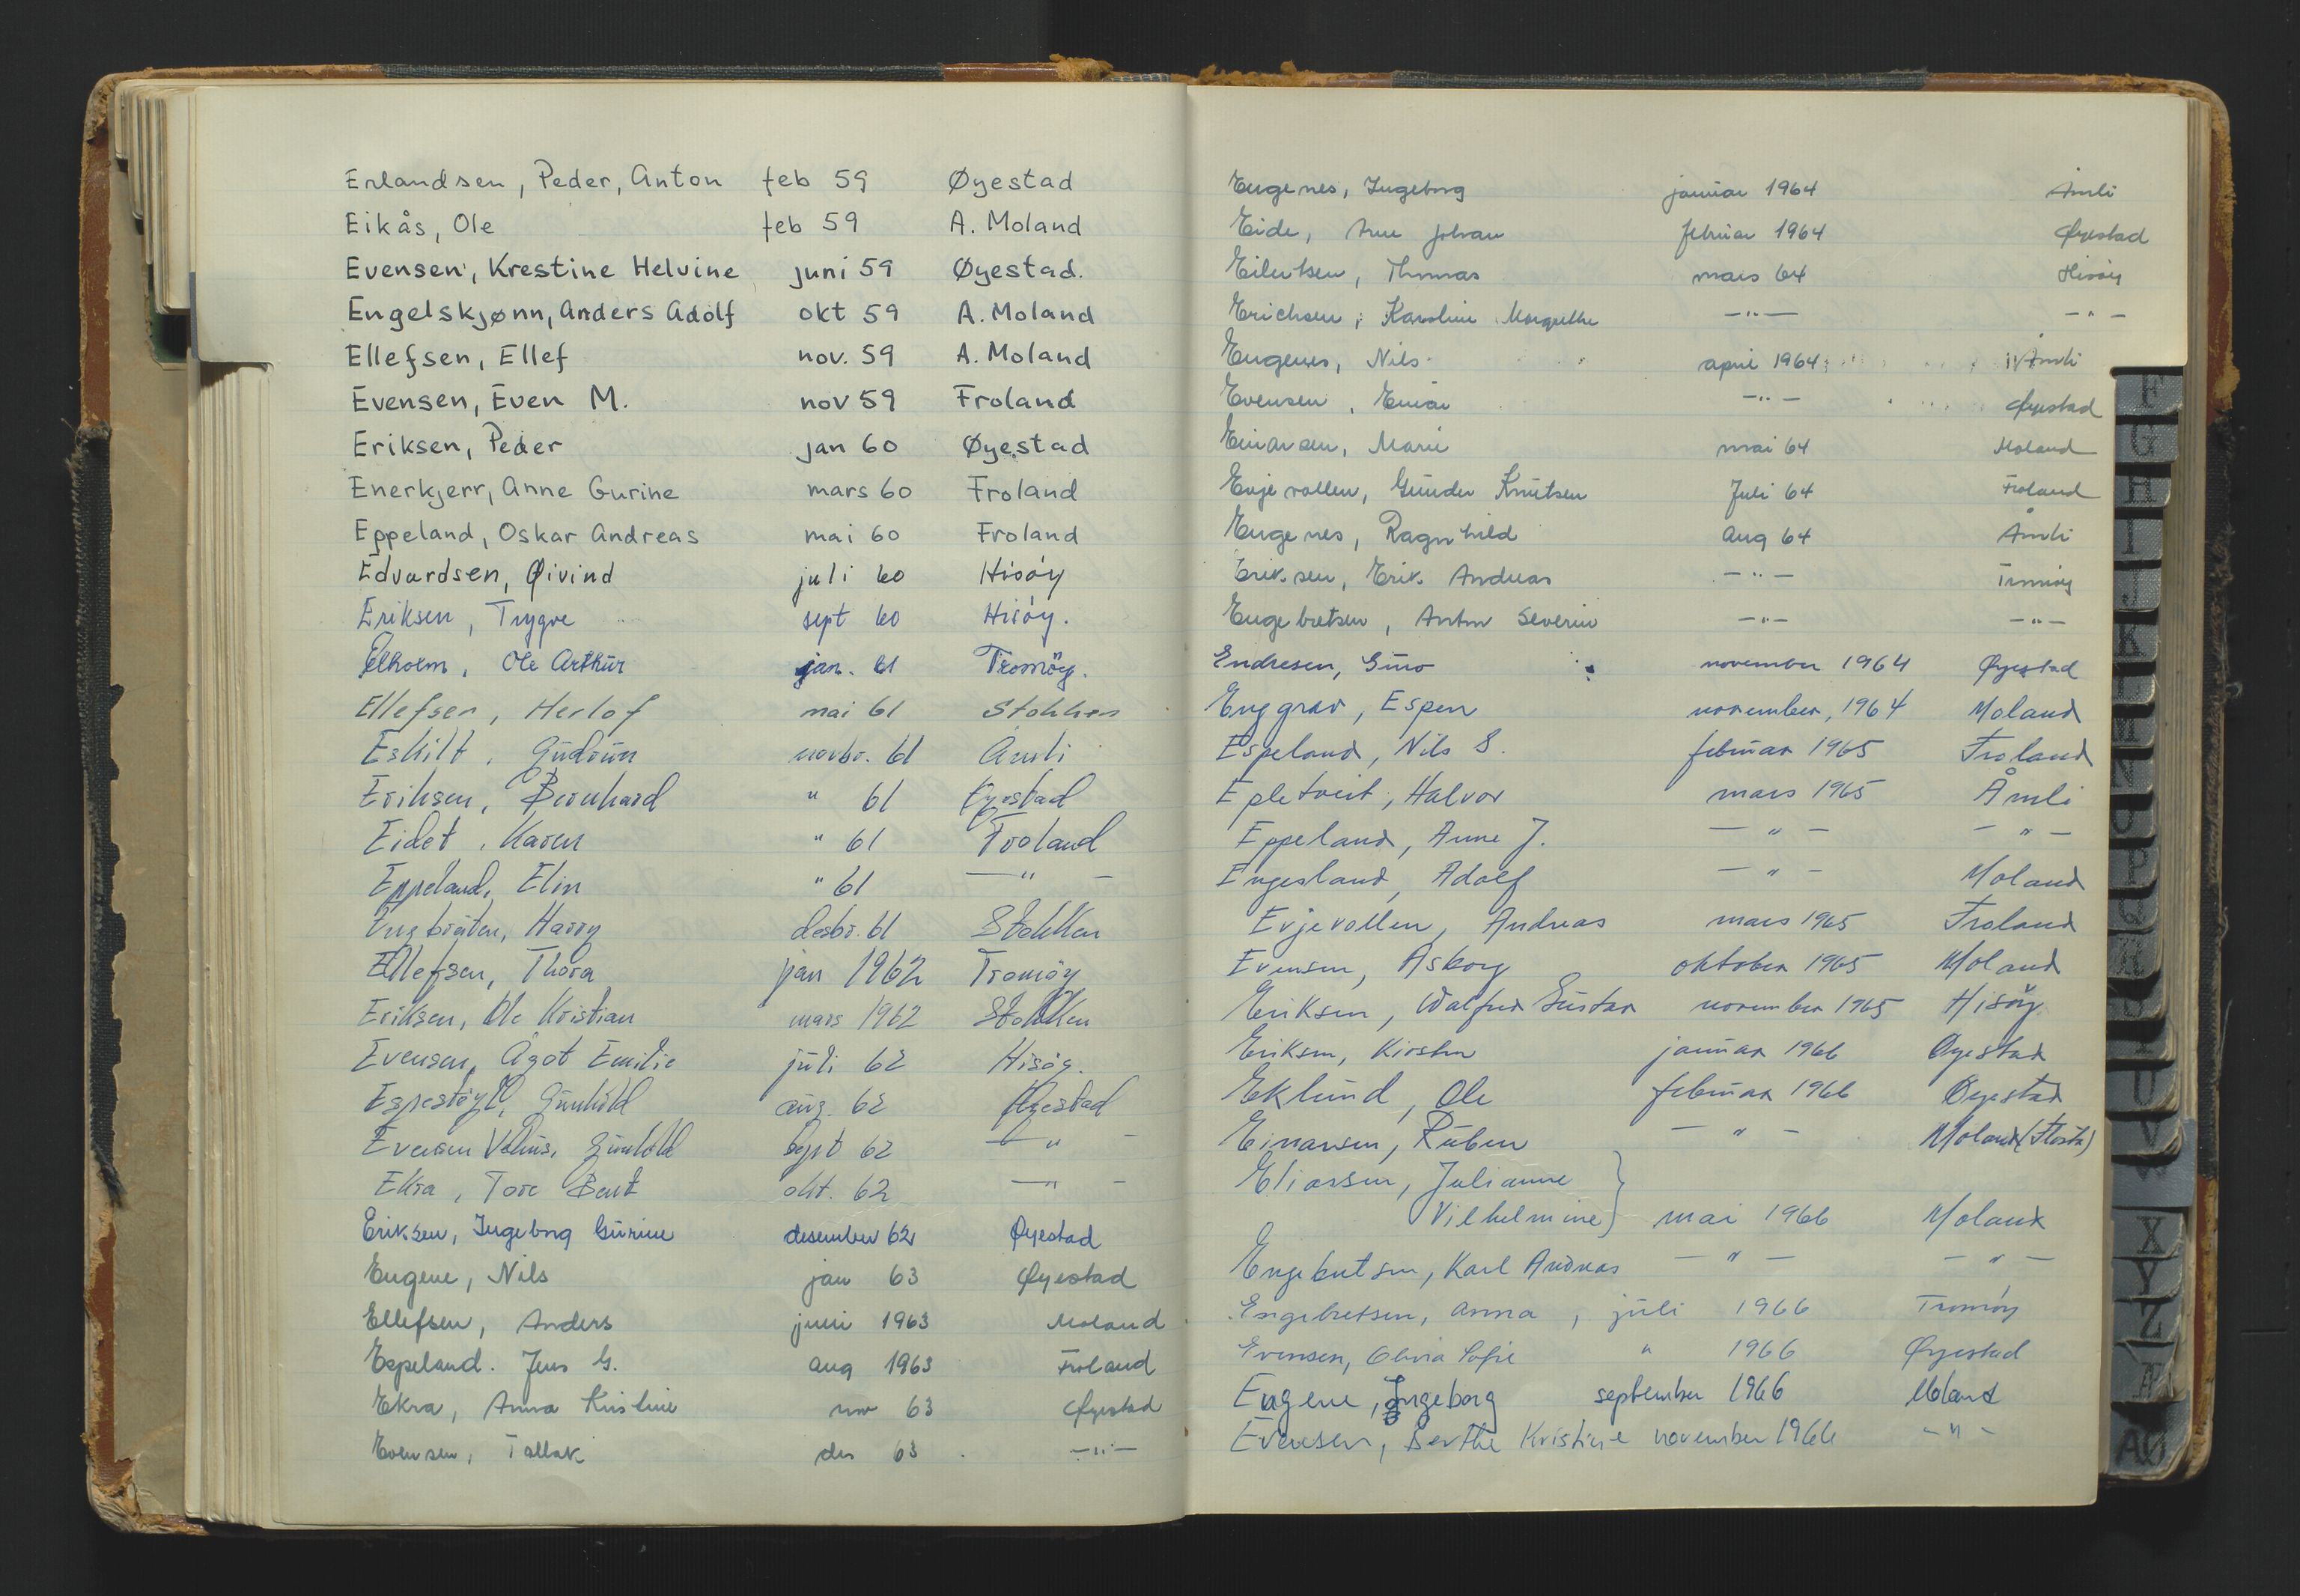 Erlandsen, Peder, Anton feb 59 Øyestad
Eikås, Ole feb 59 A. Moland
Evensen, Krestine Helvine juni 59 Øyestad.
Engelskjønn, Anders Adolf okt 59 A. Moland
Ellefsen, Ellef nov. 59 A. Moland
Evensen, Even M. nov 59 Froland
Eriksen, Peder jan 60 Øyestad
Enerkjerr, Anne Gurine mars 60 Froland
Eppeland, Oskar Andreas mai 60 Froland
Edvardsen, Øivind juli 60 Hisöy
Eriksen, Trygve sept 60 Hisöy.
Elholm, Ole Arthur jan. 61 Tromöy.
Ellefsen, Herlof mai 61 Stokken
Eskilt, Gudrun novbr. 61 Åmli
Eriksen, Bernhard " 61 Øyestad
Eidet, Karen " 61 Froland
Eppeland, Elin " 61 — " —
Engbråten, Harry desbr. 61 Stokken
Ellefsen, Thora jan 1962 Tromöy
Eriksen, Ole Kristian mars 1962 Stokken
Evensen, Ågot Emilie juli 62 Hisöy.
Espestöyl, Gunhild aug. 62 Øyestad
Evensen Gunhild Sept 62 — " —
Ekra, Tore Bent okt. 62 — " —
Eriksen, Ingeborg Gurine desember 62 Øyestad
Eugene, Nils jan 63 Øyestad
Ellefsen, Anders juni 1963 Moland
Espeland. Jens G. aug 1963 Froland
Ekra, Anna Kristine nov 63 Øyestad
Evensen, Tallak des 63 — " —
Engenes, Ingeborg januar 1964 Åmli
Eide, Arne Johan februar 1964 Øyestad
Eilertsen, Thomas mars 64 Hisöy
Erichsen, Karoline Margrethe — " — — " —
Engenes, Nils april 1964 Åmli
Evensen, Einar — " — Øyestad
Einarsen, Marie mai 64 Moland
Evjevollen, Gunder Knutsen Juli 64 Froland
Engenes, Ragnhild Aug 64 Åmli
Eriksen, Erik Andreas — " — Tromöy
Engebretsen, Anton Severin — " — — " —
Endresen, Guro november 1964 Øyestad
Enggrav, Espen november, 1964 Moland
Espeland, Nils S. februar 1965 Froland
Epletveit, Halvor mars 1965 Åmli
Eppeland, Anne J. — " — — " —
Engesland, Adolf — " — Moland
Evjevollen, Andreas mars 1965 Froland
Evensen, Asborg oktober 1965 Moland
Eriksen, Walfred Gustav november 1965 Hisöy
Eriksen, Kirsten januar 1966 Øyestad
Eklund, Ole februar 1966 Øyestad
Einarsen, Ruben — " — Moland (Flosta)
Eliassen, Julianne }
Vilhelmine } mai 1966 Moland
Engebretsen, Karl Andreas — " — — " —
Engebretsen, Anna, juli 1966 Tromöy
Evensen, Olivia Sofie " 1966 Øyestad
Eugene, Ingeborg september 1966 Moland
Evensen, Berthe Kristine november 1966 — " —
F
G
H
I
J
K
L
M
N
O
P
Q
R
S
T
U
V
W
X
Y
Z
Æ
AØ